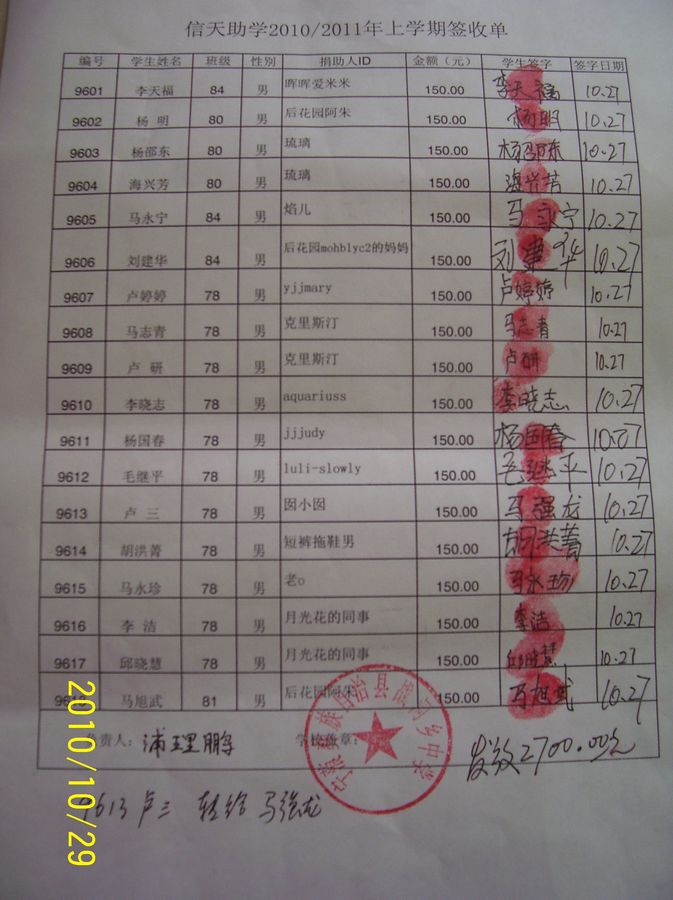 信天助学2010/2011年上学期签收单
编号 学生姓名 班级 性别 捐助人ID 金额（元） 学生签字 签字日期
9601 李天福 84 男 晖晖爱米米 150.00 李天福 10.27
9602 杨 明 80 男 后花园阿朱 150.00 杨明 10.27
9603 杨邵东 80 男 琉璃 150.00 杨邵东 10.27
9604 海兴芳 80 男 琉璃 150.00 海兴芳 10.27
9605 马永宁 84 男 焰儿 150.00 马永宁 10.27
9606 刘建华 84 男 后花园mohblyc2的妈妈 150.00 刘建华 10.27
9607 卢婷婷 78 男 yjjmary 150.00 卢婷婷 10.27
9608 马志青 78 男 克里斯汀 150.00 马志青 10.27
9609 卢 研 78 男 克里斯汀 150.00 卢研 10.27
9610 李晓志 78 男 aquariuss 150.00 李晓志 10.27
9611 杨国春 78 男 jjjudy 150.00 杨国春 10.27
9612 毛继平 78 男 luli-slowly 150.00 毛继平 10.27
9613 卢 三 78 男 囡小囡 150.00 马强龙 10.27
9614 胡洪菁 78 男 短裤拖鞋男 150.00 胡洪菁 10.27
9615 马永珍 78 男 老o 150.00 马永珍 10.27
9616 李 洁 78 男 月光花的同事 150.00 李洁 10.27
9617 邱晓慧 78 男 月光花的同事 150.00 邱晓慧 10.27
9618 马旭武 81 男 后花园阿朱 150.00 马旭武 10.27
负责人：浦理鹏 学校盖章： 发放2700.00元
族自治县 乡中学
9613 卢三 转给 马强龙
2010/10/29